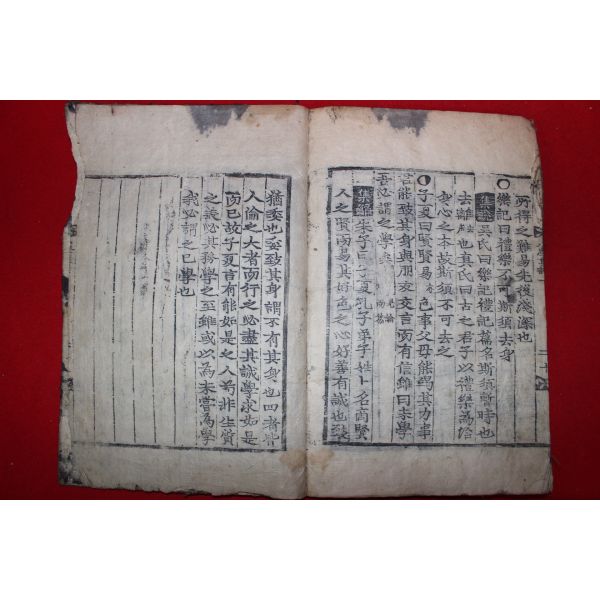 所得之難易先後淺深也
○樂記曰禮樂不可斯須去身
集說吳氏曰樂記禮記篇名斯須暫時也
去離也真氏曰古之君子以禮樂為治
身心之本故斯須不可去之
○子夏曰賢賢易色事父母能竭其力事
君能致其身與朋友交言而有信雖曰未學
吾必謂之學矣
集說朱子曰子夏孔子弟子姓卜名商賢
人之賢而易其好色之心好善有誠也致
猶委也委致其身謂不有其身也四者皆
人倫之大者而行之必盡其誠學求如是
而已故子夏言有能如是之人苟非生質
之美必其務學之至雖或以為未嘗為學
我必謂之已學也